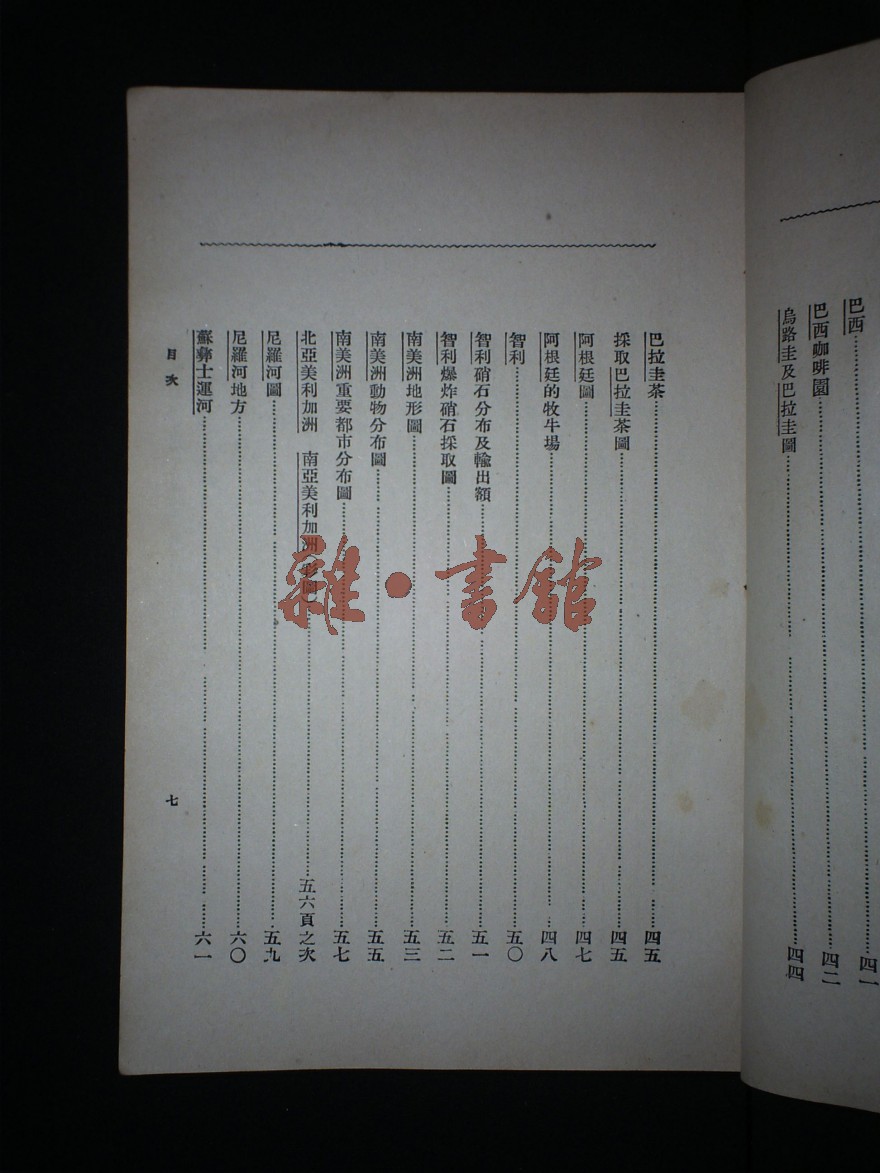 巴西……四一
巴西咖啡園……四二
烏路圭及巴拉圭圖……四四
巴拉圭茶……四五
採取巴拉圭茶圖……四五
阿根廷圖……四七
阿根廷的牧牛場……四八
智利……五〇
智利硝石分布及輸出額……五一
智利爆炸硝石採取圖……五二
南美洲地形圖……五三
南美洲動物分布圖……五五
南美洲重要都市分布圖……五七
北亞美利加洲 南亞美利加洲 圖……五六頁之次
尼羅河圖……五九
尼羅河地方……六〇
蘇彝士運河……六一
目次
七
雜·書館